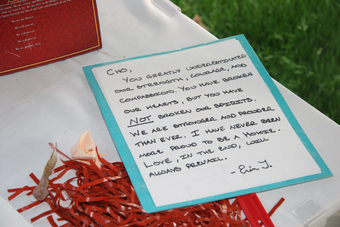 Cho,
You greatly underestimated
our strength, courage, and
compassion. You have broken
our hearts, but you have
NOT broken our spirits.
We are stronger and prouder
than ever. I have never been
more proud to be a Hokie.
Love, in the end, will
always prevail.
- Erin J.